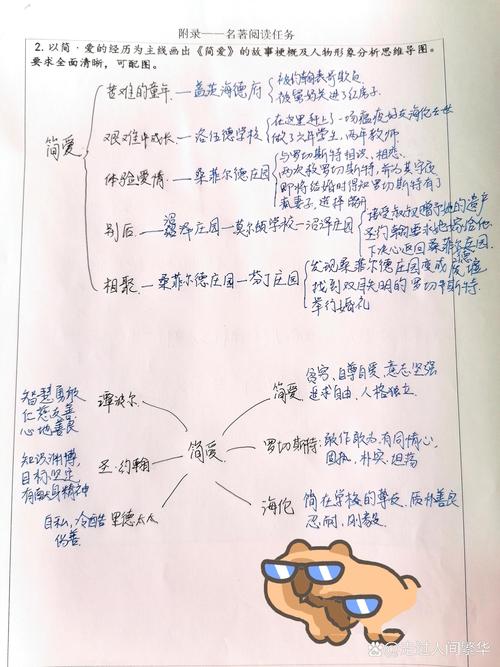 附录——名著阅读任务
2. 以简·爱的经历为主线画出《简爱》的故事梗概及人物形象分析思维导图。
要求全面清晰，可配图。
简爱
苦难的童年—盖茨海德府
被约翰表哥欺负
被舅妈关进了红房子
艰难中成长—洛伍德学校
在这里种上了一场瘟疫好友海伦去世
做了六年学生，两年教师
体验爱情—桑菲尔德庄园
与罗切斯特相识、相恋
两次救罗切斯特，并为其守夜
即将结婚时得知罗切斯特有了
疯妻子，选择离开
别后—沼泽庄园—莫尔顿学校—沼泽庄园
接受叔叔赠予她的遗产
圣约翰要求她嫁给他
下决心返回桑菲尔庄园
相聚—桑菲尔德庄园—芬丁庄园
发现桑菲尔德庄园变成废墟
找到双目失明的罗切斯特
举行婚礼
智慧勇敢
仁慈友善
心地善良
谭波尔
简爱
贫穷、自尊自爱、意志坚强
追求自由、人格独立
知识渊博，
目标坚定
有献身精神
圣·约翰
简爱
罗切斯特:敢作敢为,有同情心,
固执、朴实、坦荡
自私,冷酷
伪善
里德太太
海伦
简在学校的尊友、质朴善良
忍耐、刚毅
走过人间繁华